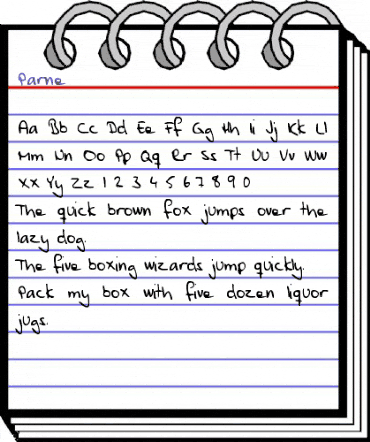 Parne
Aa Bb Cc Dd Ee Ff Gg Hh Ii Jj Kk Ll
Mm Nn Oo Pp Qq Rr Ss Tt Uu Vv Ww
Xx Yy Zz 1 2 3 4 5 6 7 8 9 0
The quick brown fox jumps over the
lazy dog.
The five boxing wizards jump quickly.
Pack my box with five dozen liquor
jugs.